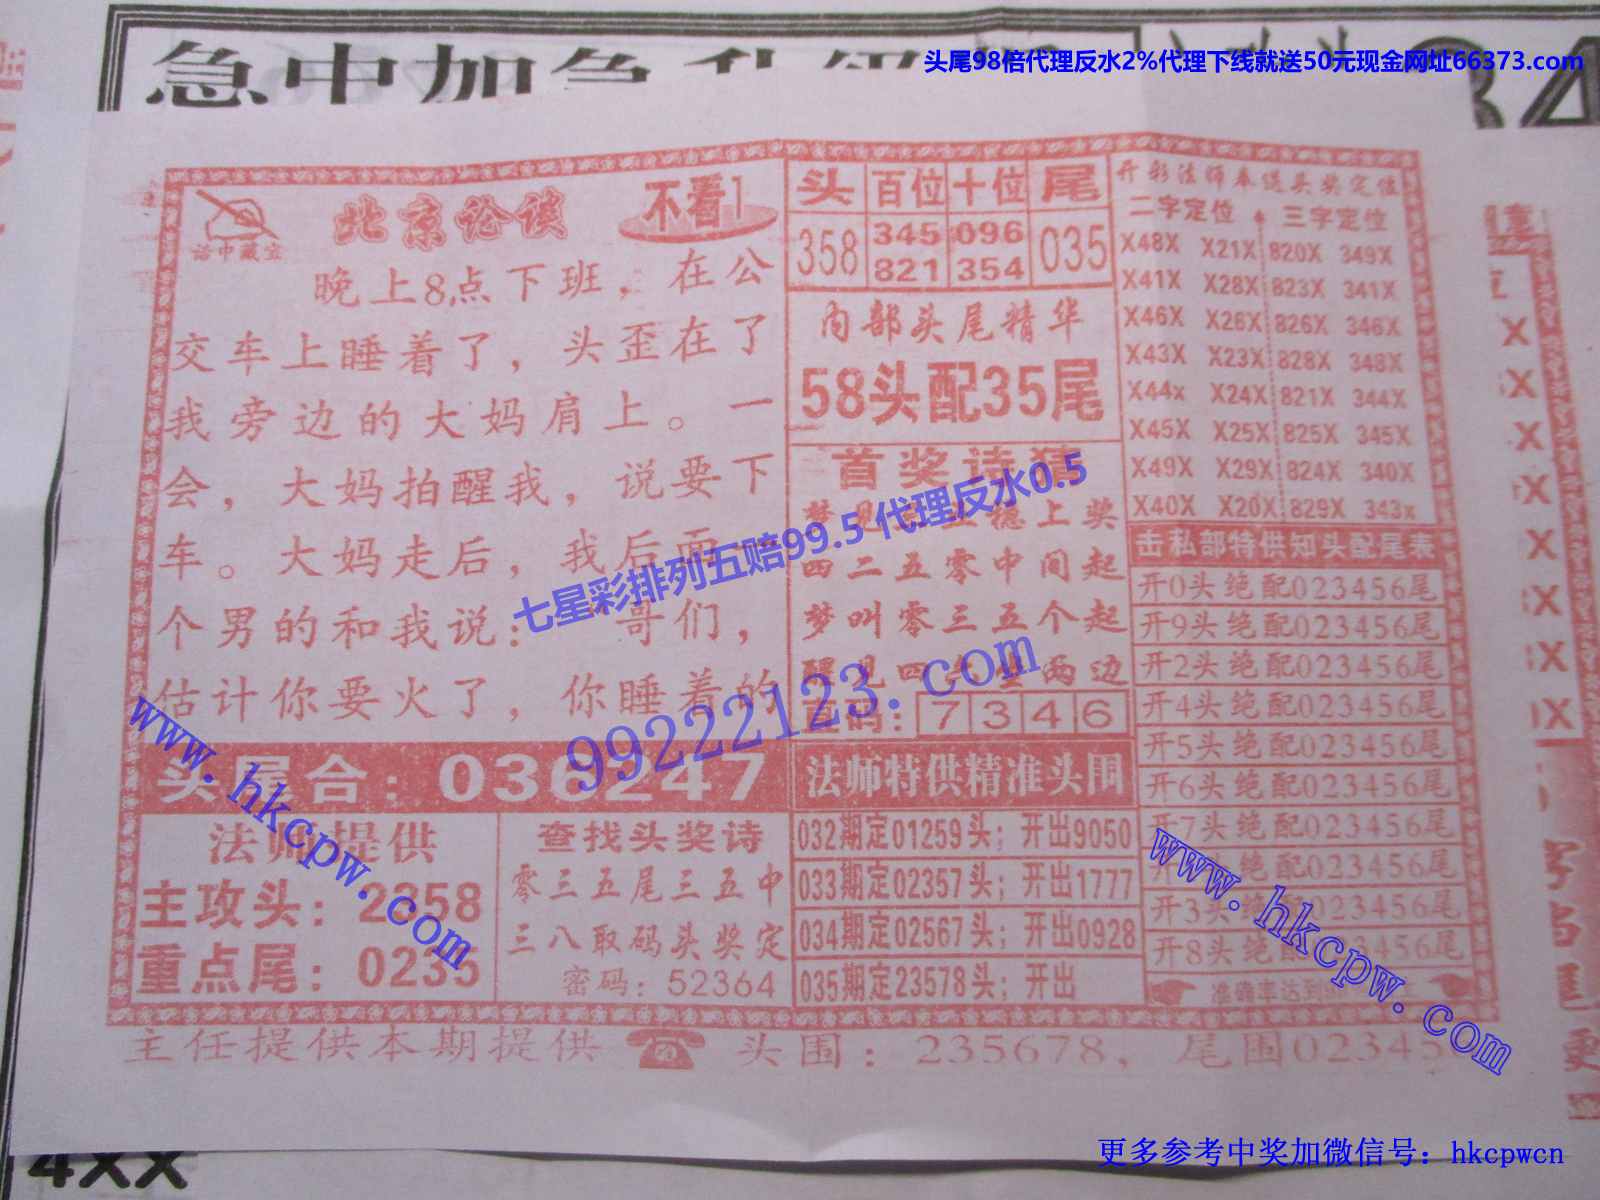 头尾98倍代理反水2%代理下线就送50元现金网址66373.com
急中加急
北京论谈
不看1
话中藏宝
晚上8点下班，在公
交车上睡着了，头歪在了
我旁边的大妈肩上。一
会，大妈拍醒我，说要下
车。大妈走后，我后面一
个男的和我说：“哥们，
估计你要火了，你睡着的
头尾合：036247
法师提供
主攻头：2358
重点尾：0235
查找头奖诗
零三五尾三五中
三八取码头奖定
密码：52364
头 百位 十位 尾
358 345 096 035
821 354
内部头尾精华
58头配35尾
首奖诗猜
四二五零中间起
梦叫零三五个起
直码：7 3 4 6
法师特供精准头围
032期定01259头；开出9050
033期定02357头；开出1777
034期定02567头；开出0928
035期定23578头；开出
开彩法师奉送头奖定位
二字定位 三字定位
X48X X21X 820X 349X
X41X X28X 823X 341X
X46X X26X 826X 346X
X43X X23X 828X 348X
X44x X24X 821X 344X
X45X X25X 825X 345X
X49X X29X 824X 340X
X40X X20X 829X 343x
击私部特供知头配尾表
开0头绝配023456尾
开9头绝配023456尾
开2头绝配023456尾
开4头绝配023456尾
开5头绝配023456尾
开6头绝配023456尾
开7头绝配023456尾
开3头绝配023456尾
开8头绝配023456尾
准确率达到
主任提供本期提供 头围：235678，尾围02345
七星彩排列五赔99.5 代理反水0.5
99222123.com
www.hkcpw.com
www.hkcpw.com
4XX
更多参考中奖加微信号：hkcpwcn